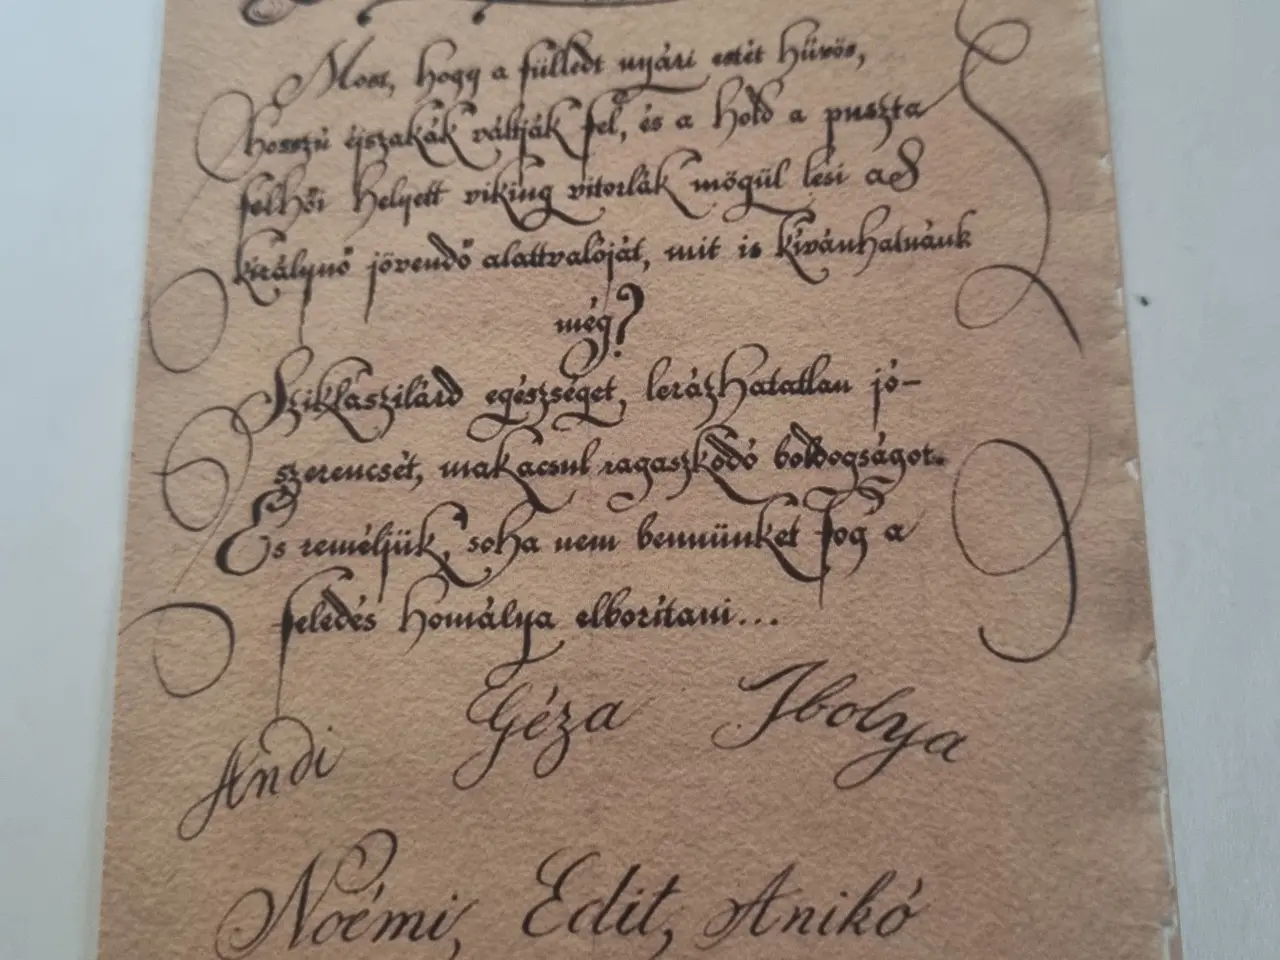 Most, hogy a fülledt nyári estét hűvös,
hosszú éjszakák váltják fel, és a hold a puszta
felhői helyett viking vitorlák mögül lesi a
királynő jövendő alattvalóját, mit is kívánhatnánk
még?
Sziklaszilárd egészséget, lerázhatatlan jó-
szerencsét, makacsul ragaszkodó boldogságot.
És reméljük, soha nem bennünket fog a
feledés homálya elborítani...
Andi Géza Ibolya
Noémi, Edit, Anikó